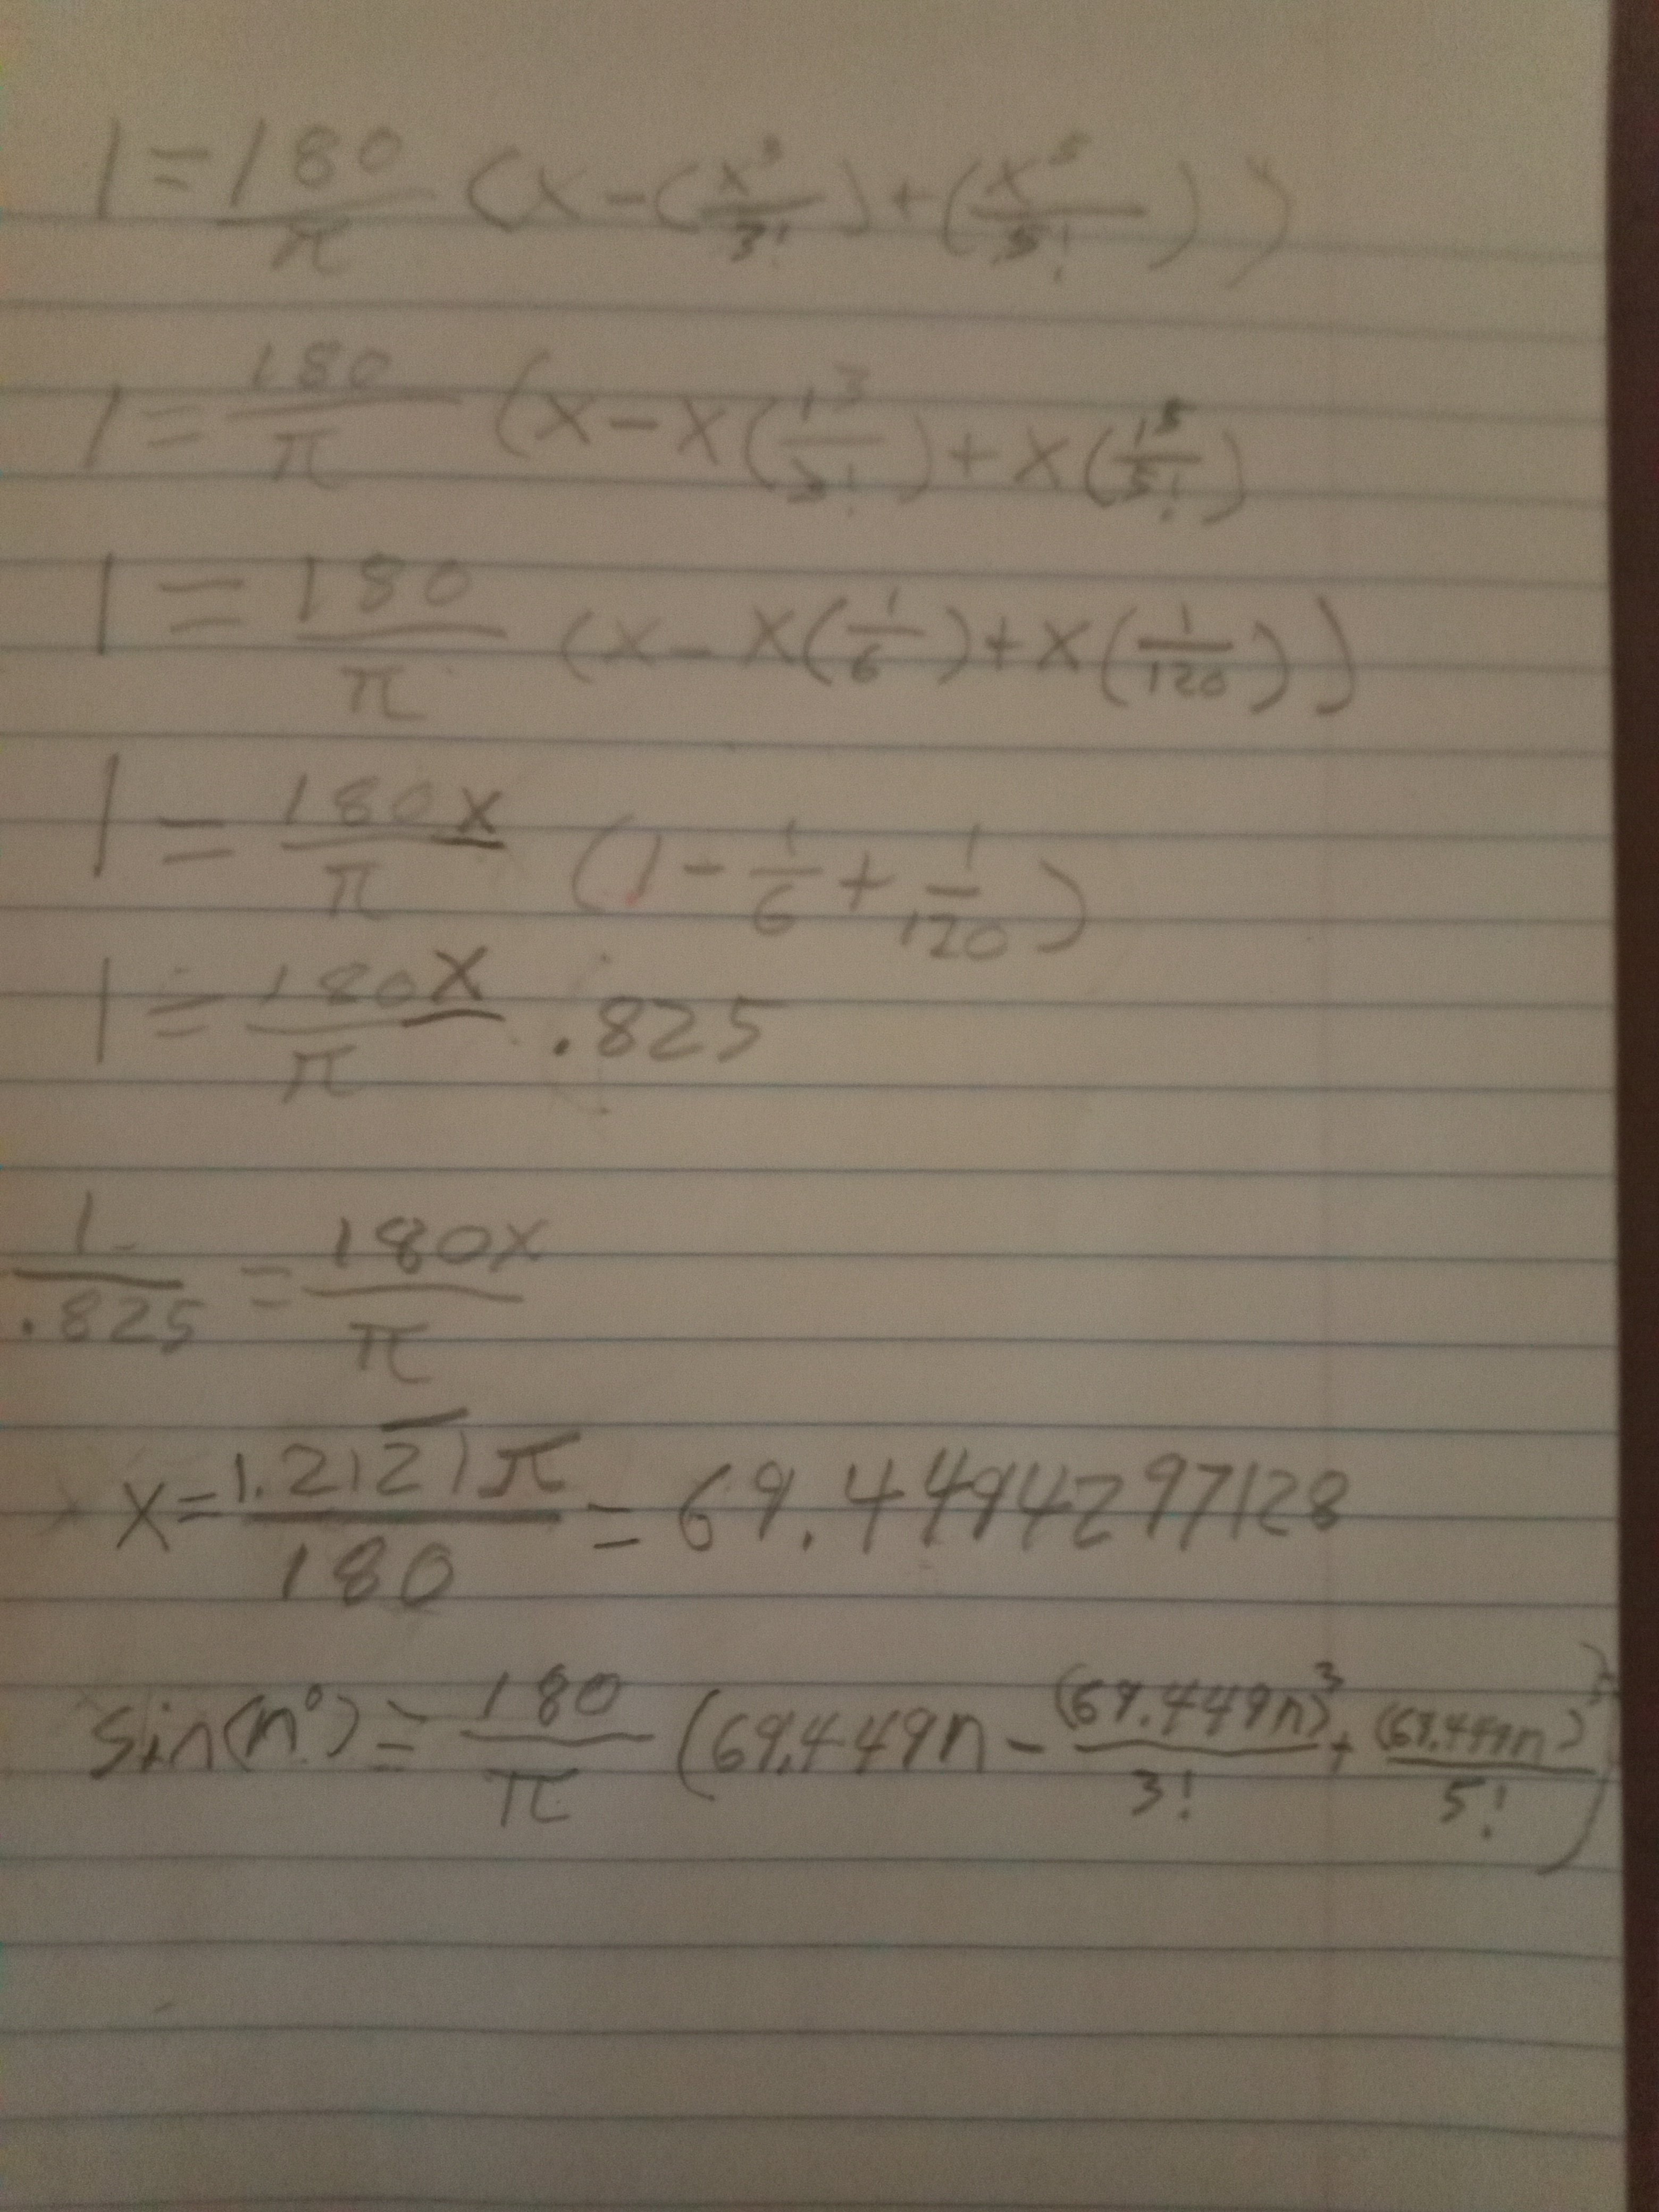 1 = 180/π (x - (x³/3!) + (x⁵/5!))
1 = 180/π (x - x(1³/3!) + x(1⁵/5!)
1 = 180/π (x - x(1/6) + x(1/120))
1 = 180x/π (1 - 1/6 + 1/120)
1 = 180x/π .825
1/.825 = 180x/π
x = 1.212̅1̅π/180 = 69.4494297128
sin(n°) = 180/π (69.449n - (69.449n)³/3! + (69.449n)⁵/5!)